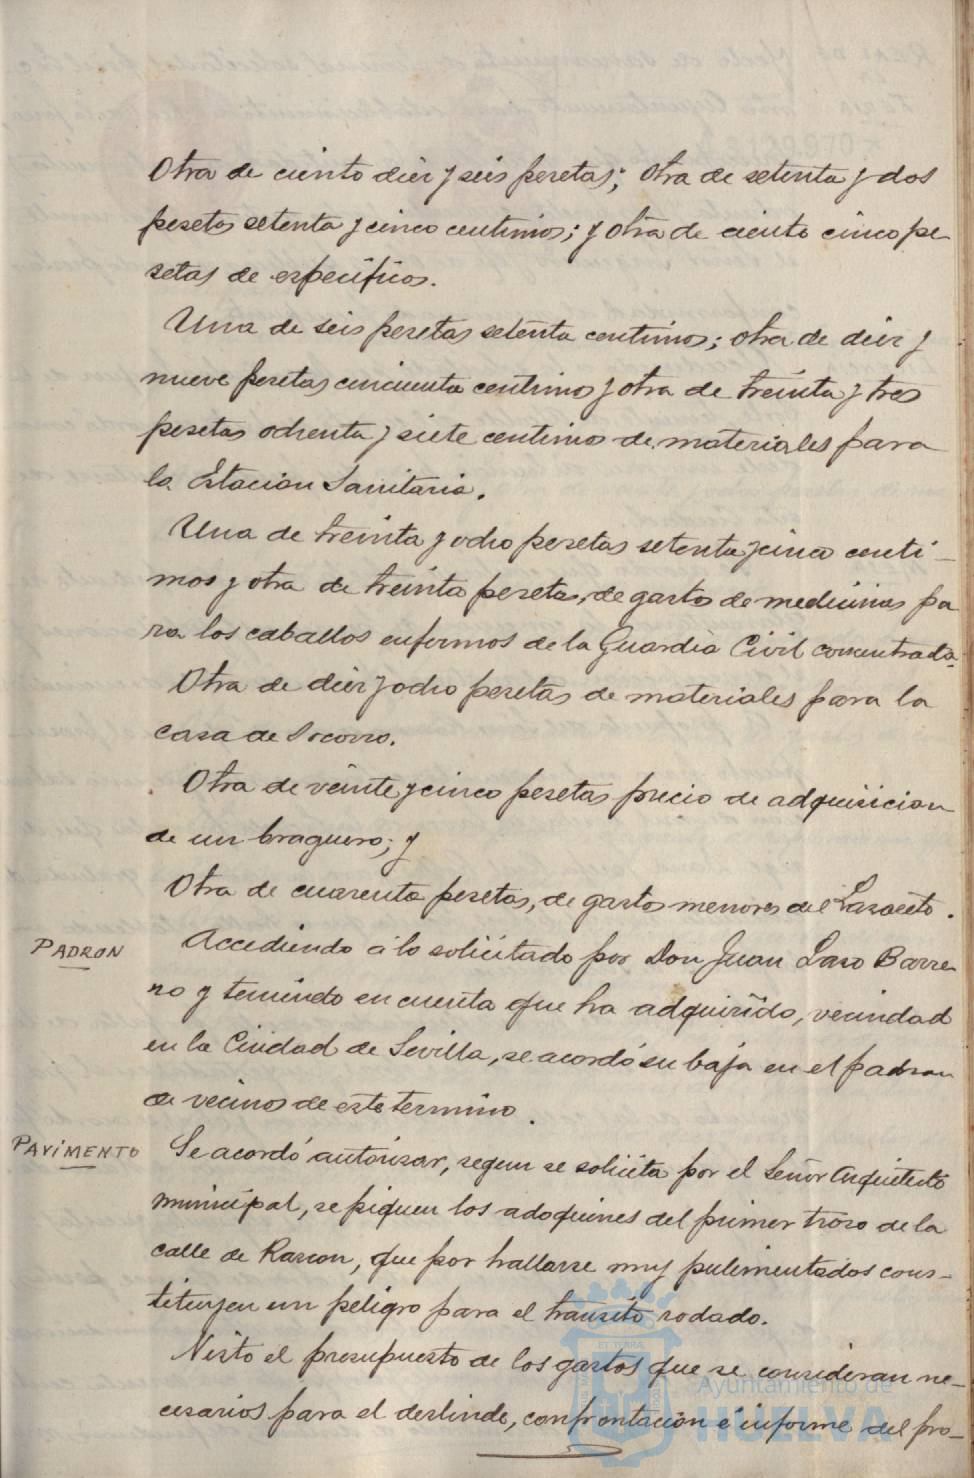 Otra de ciento diez y seis pesetas; otra de setenta y dos
pesetas setenta y cinco centimos; y otra de ciento cinco pe-
setas de especificos.
Una de seis pesetas setenta centimos; otra de diez y
nueve pesetas cincuenta centimos y otra de treinta y tres
pesetas ochenta y siete centimos de materiales para
la Estacion Sanitaria.
Una de treinta y ocho pesetas setenta y cinco centi-
mos y otra de treinta pesetas, de gastos de medicinas pa
ra los caballos enfermos de la Guardia Civil concentrada.
Otra de diez y ocho pesetas de materiales para la
casa de Socorro.
Otra de veinte y cinco pesetas precio de adquisicion
de un braguero; y
Otra de cuarenta pesetas, de gastos menores del Lazareto.
PADRON
Accediendo á lo solicitado por Don Juan Lazo Barre
ro y teniendo en cuenta que ha adquirido, vecindad
en la Ciudad de Sevilla, se acordó su baja en el padron
de vecinos de este termino.
PAVIMENTO
Se acordó autorizar, segun se solicita por el Señor Arquitecto
municipal, se piquen los adoquines del primer trozo de la
calle de Rascon, que por hallarse muy pulimentados cons-
tituyen un peligro para el transito rodado.
Visto el presupuesto de los gastos que se consideran ne-
cesarios para el deslinde, confrontacion é informe del pro-
Ayuntamiento de
HUELVA